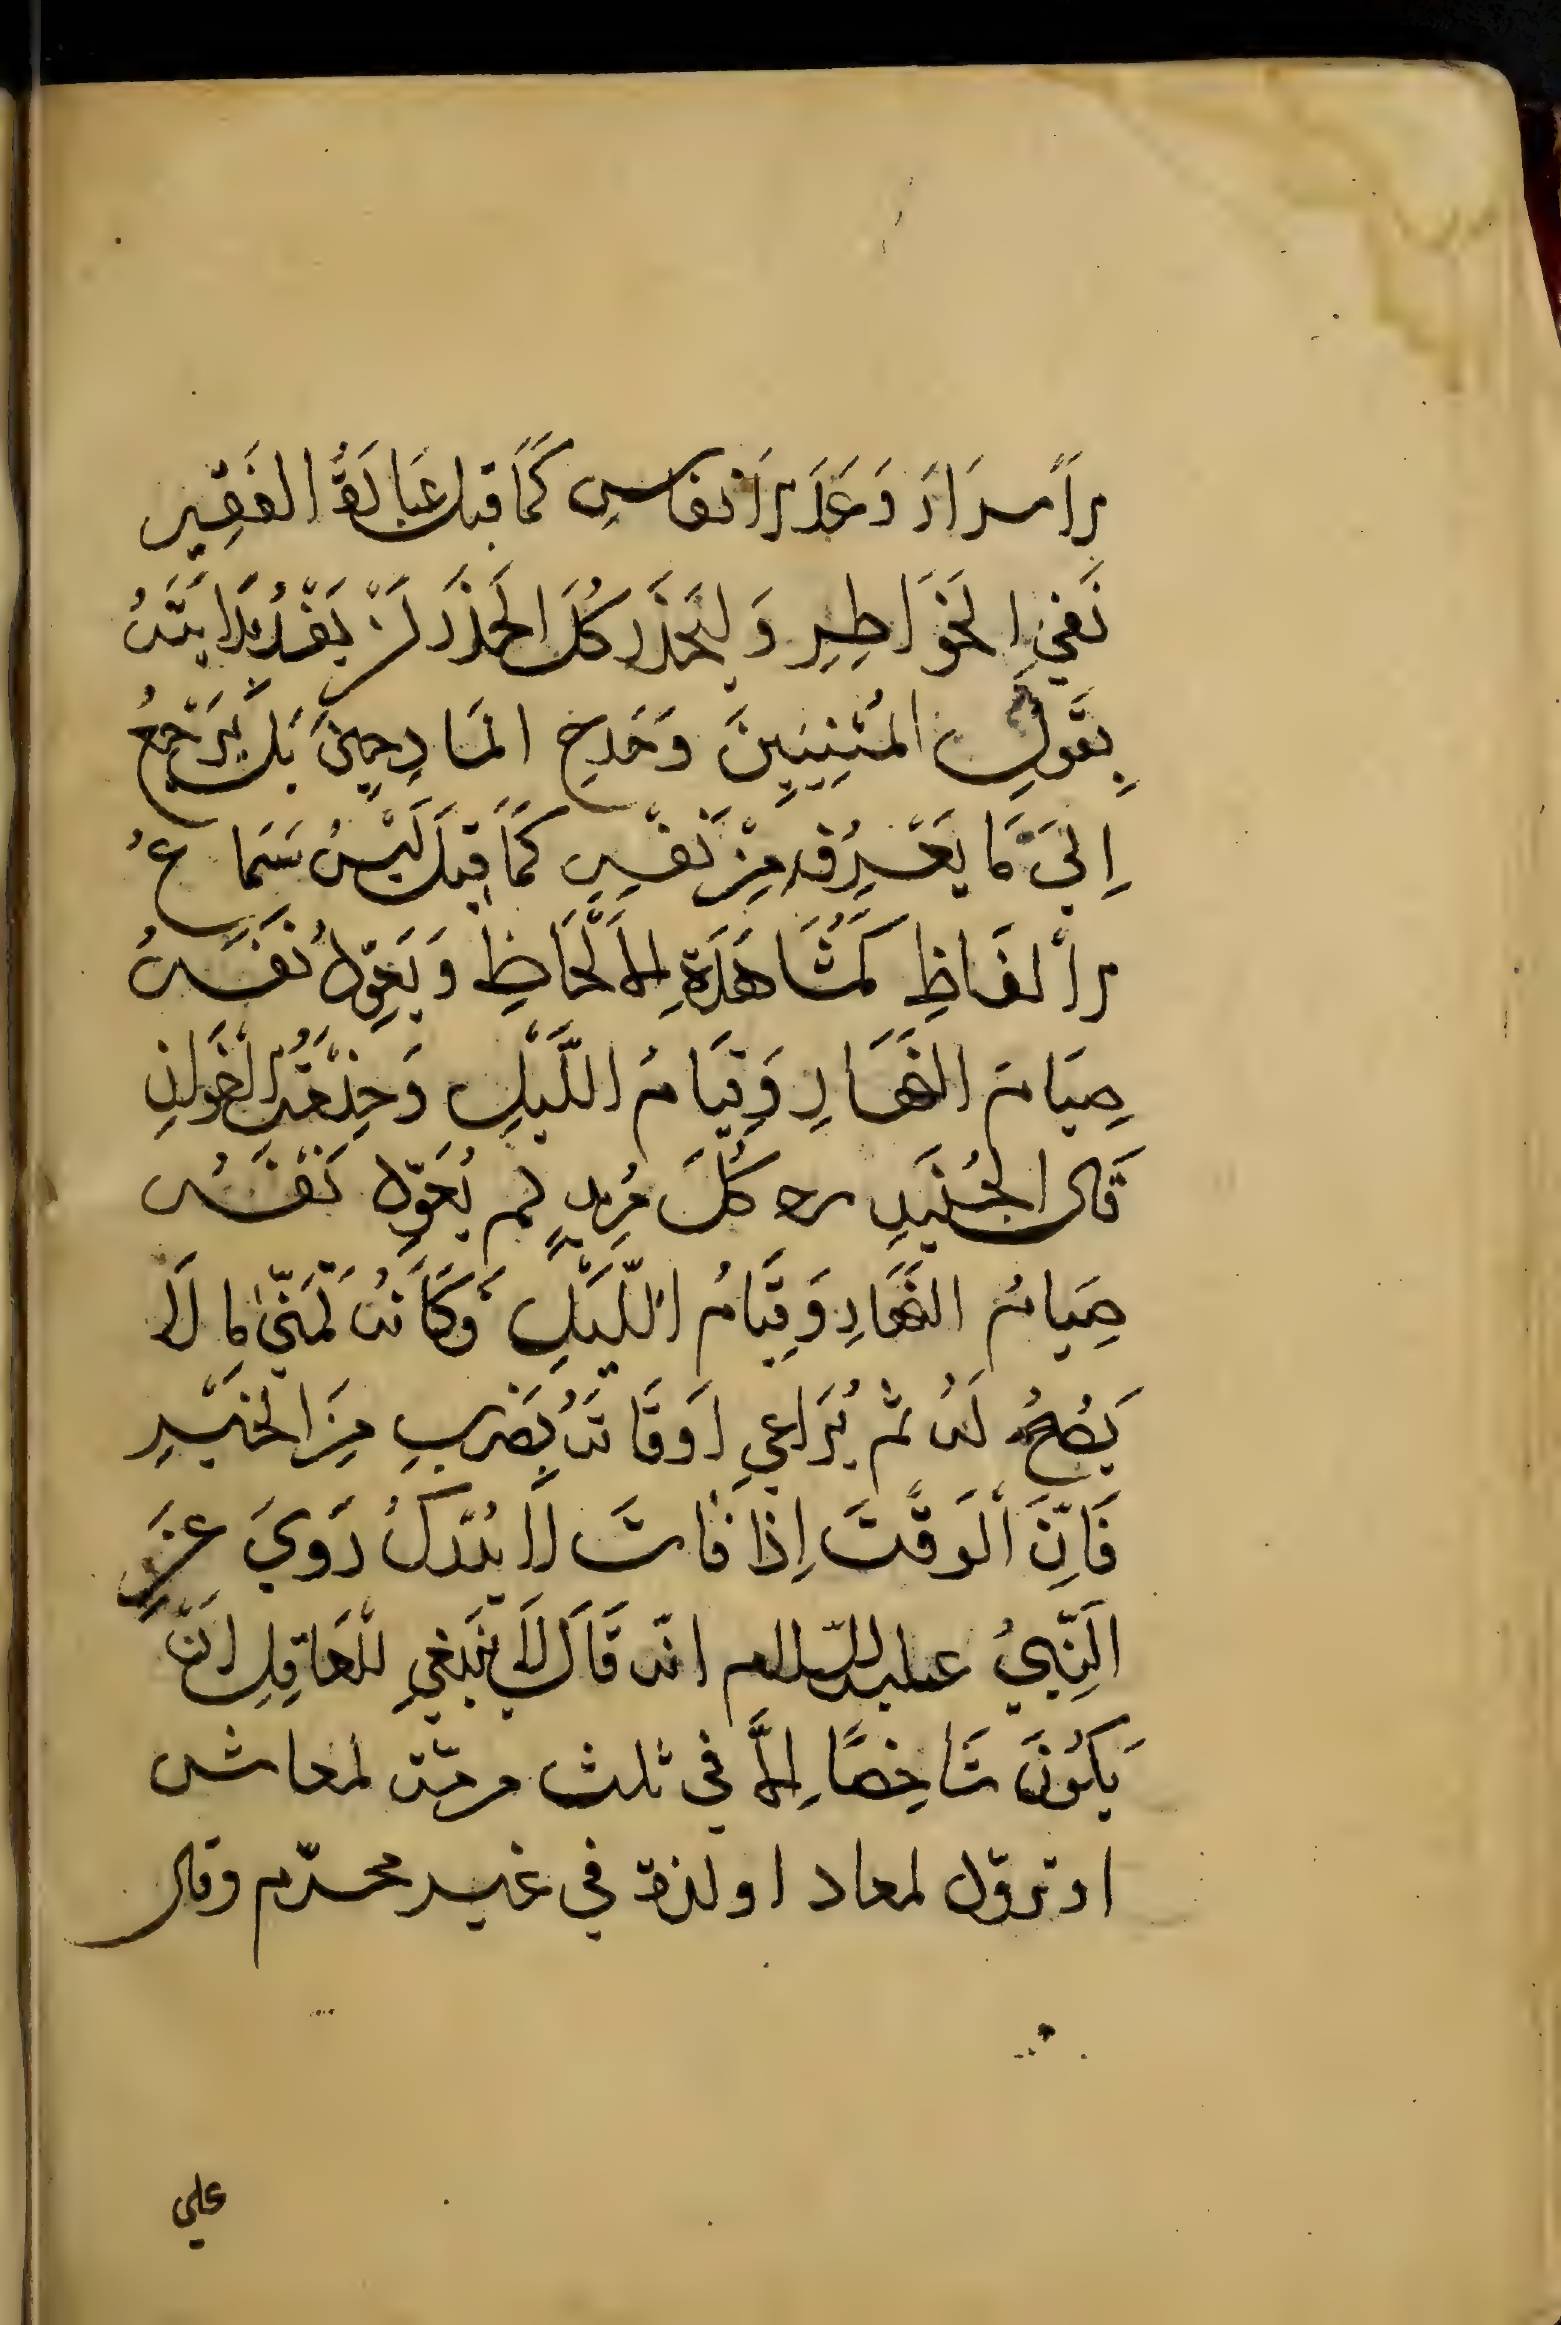 الأسرار وعد الأنفاس كما قيل عبادة الفقير
نفي الخواطر وليحذر كل الحذر لن يغر بدايته
بقول المثنين ومدح المادحين بل يرجع
إلى ما يعرفه من نفسه كما قيل ليس سماع
الألفاظ كمشاهدة الألحاظ ويعود نفسه
صيام النهار وقيام الليل وخدمة الإخوان
قال الجنيد ره كل مريد لم يعود نفسه
صيام النهار وقيام الليل وكأنه تمنى ما لا
يصح له ثم يراعي أوقاته بضرب من الخير
فإن الوقت إذا فات لا يدرك روي عن
النبي عليه السلام انه قال لا ينبغي للعاقل ان
يكون شاخصا إلا في ثلث مرمة لمعاش
او تزود لمعاد او لذة في غير محرم وقال
علي